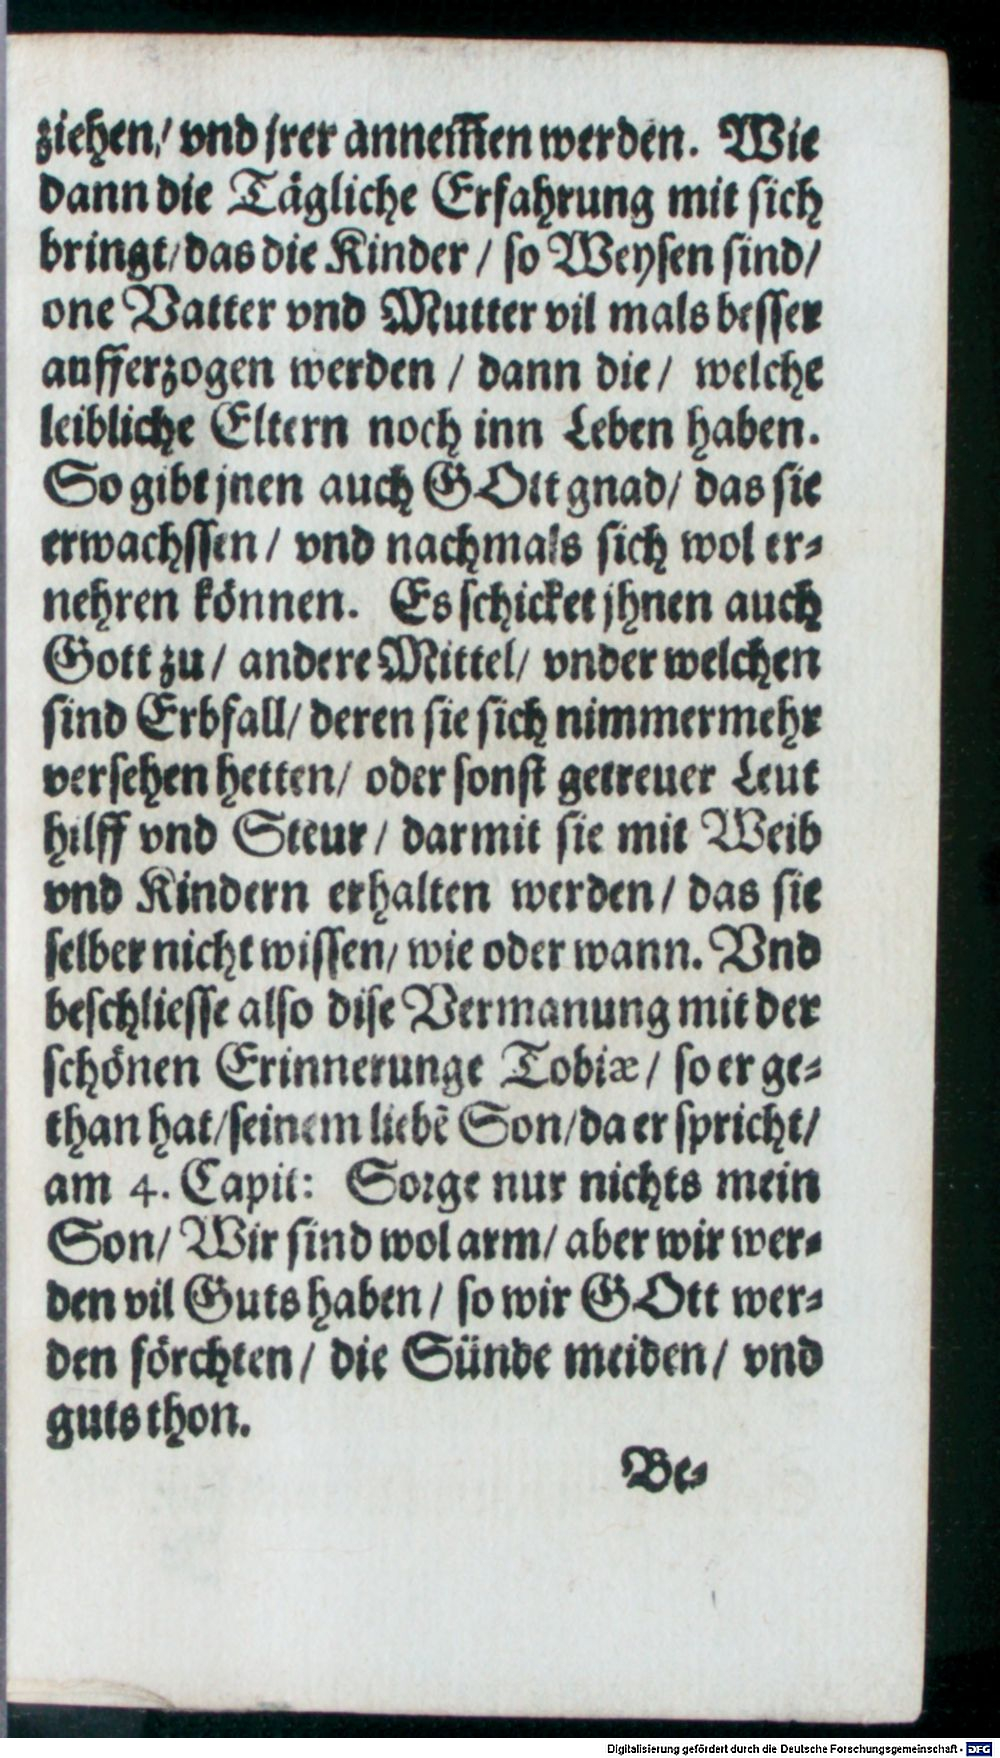 ziehen/ vnd jrer annem̃en werden. Wie
dann die Tägliche Erfahrung mit sich
bringt/ das die Kinder / so Weysen sind/
one Vatter vnd Mutter vil mals besser
aufferzogen werden / dann die / welche
leibliche Eltern noch inn Leben haben.
So gibt jnen auch GOtt gnad/ das sie
erwachssen / vnd nachmals sich wol er-
nehren können. Es schicket jhnen auch
Gott zu / andere Mittel/ vnder welchen
sind Erbfall/ deren sie sich nimmermehr
versehen hetten/ oder sonst getreuer Leut
hilff vnd Steur / darmit sie mit Weib
vnd Kindern erhalten werden / das sie
selber nicht wissen/ wie oder wann. Vnd
beschliesse also dise Vermanung mit der
schönen Erinnerunge Tobiæ / so er ge-
than hat/ seinem liebẽ Son/ da er spricht/
am 4. Capit: Sorge nur nichts mein
Son/ Wir sind wol arm/ aber wir wer-
den vil Guts haben / so wir GOtt wer-
den förchten / die Sünde meiden / vnd
guts thon.
Be-
Digitalisierung gefördert durch die Deutsche Forschungsgemeinschaft - DFG